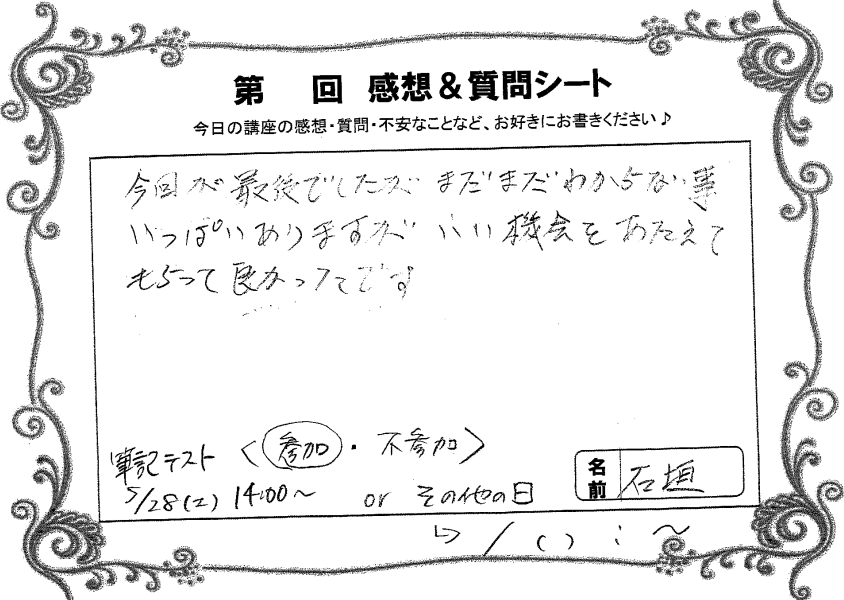 第　回 感想＆質問シート
今日の講座の感想・質問・不安なことなど、お好きにお書きください♪
今回が最後でしたが まだまだわからない事
いっぱいありますが いい機会をあたえて
もらって良かったです
筆記テスト 〈参加・不参加〉
5/28(土) 14:00～ or その他の日
↳ / ( ) : ～
名前 石垣